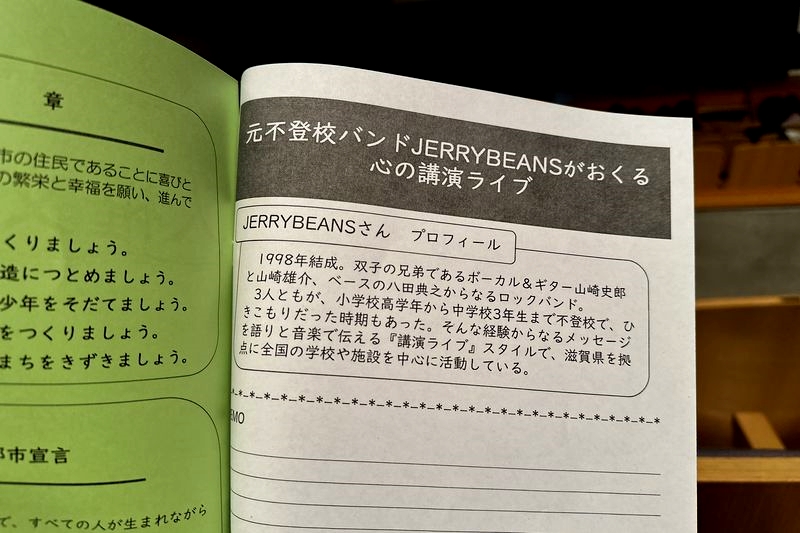 章
市の住民であることに喜びと
の繁栄と幸福を願い、進んで
くりましょう。
造につとめましょう。
少年をそだてましょう。
をつくりましょう。
まちをきずきましょう。
市宣言
で、すべての人が生まれながら
元不登校バンドJERRYBEANSがおくる
心の講演ライブ
JERRYBEANSさん プロフィール
1998年結成。双子の兄弟であるボーカル&ギター山崎史郎
と山崎雄介、ベースの八田典之からなるロックバンド。
3人ともが、小学校高学年から中学校3年生まで不登校で、ひ
きこもりだった時期もあった。そんな経験からなるメッセージ
を語りと音楽で伝える『講演ライブ』スタイルで、滋賀県を拠
点に全国の学校や施設を中心に活動している。
-*-*-*-*-*-*-*-*-*-*-*-*-*-*-*-*-*-*-*-*-*-*-*-*-*
EMO